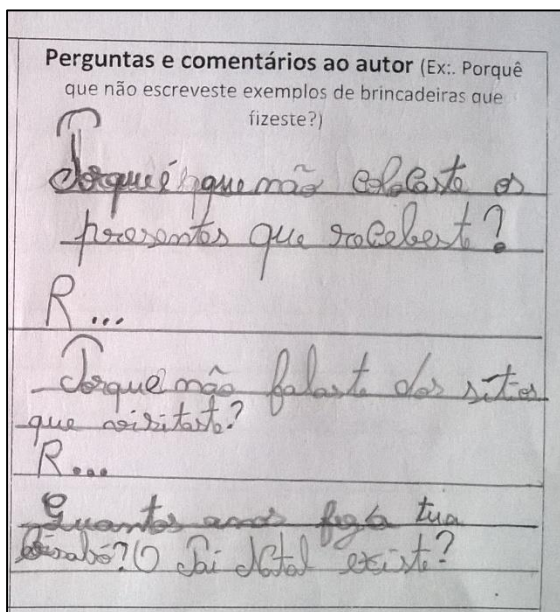 Perguntas e comentários ao autor (Ex:. Porquê
que não escreveste exemplos de brincadeiras que
fizeste?)
Porquê que não colocaste os
presentes que recebeste?
R...
Porque não falaste dos sitios
que visitaste?
R...
Quantos anos fez a tua
bisabó? O Pai Natal existe?